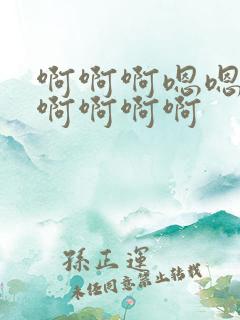 啊啊啊嗯嗯
啊啊啊啊
孫正運
未经同意禁止转载